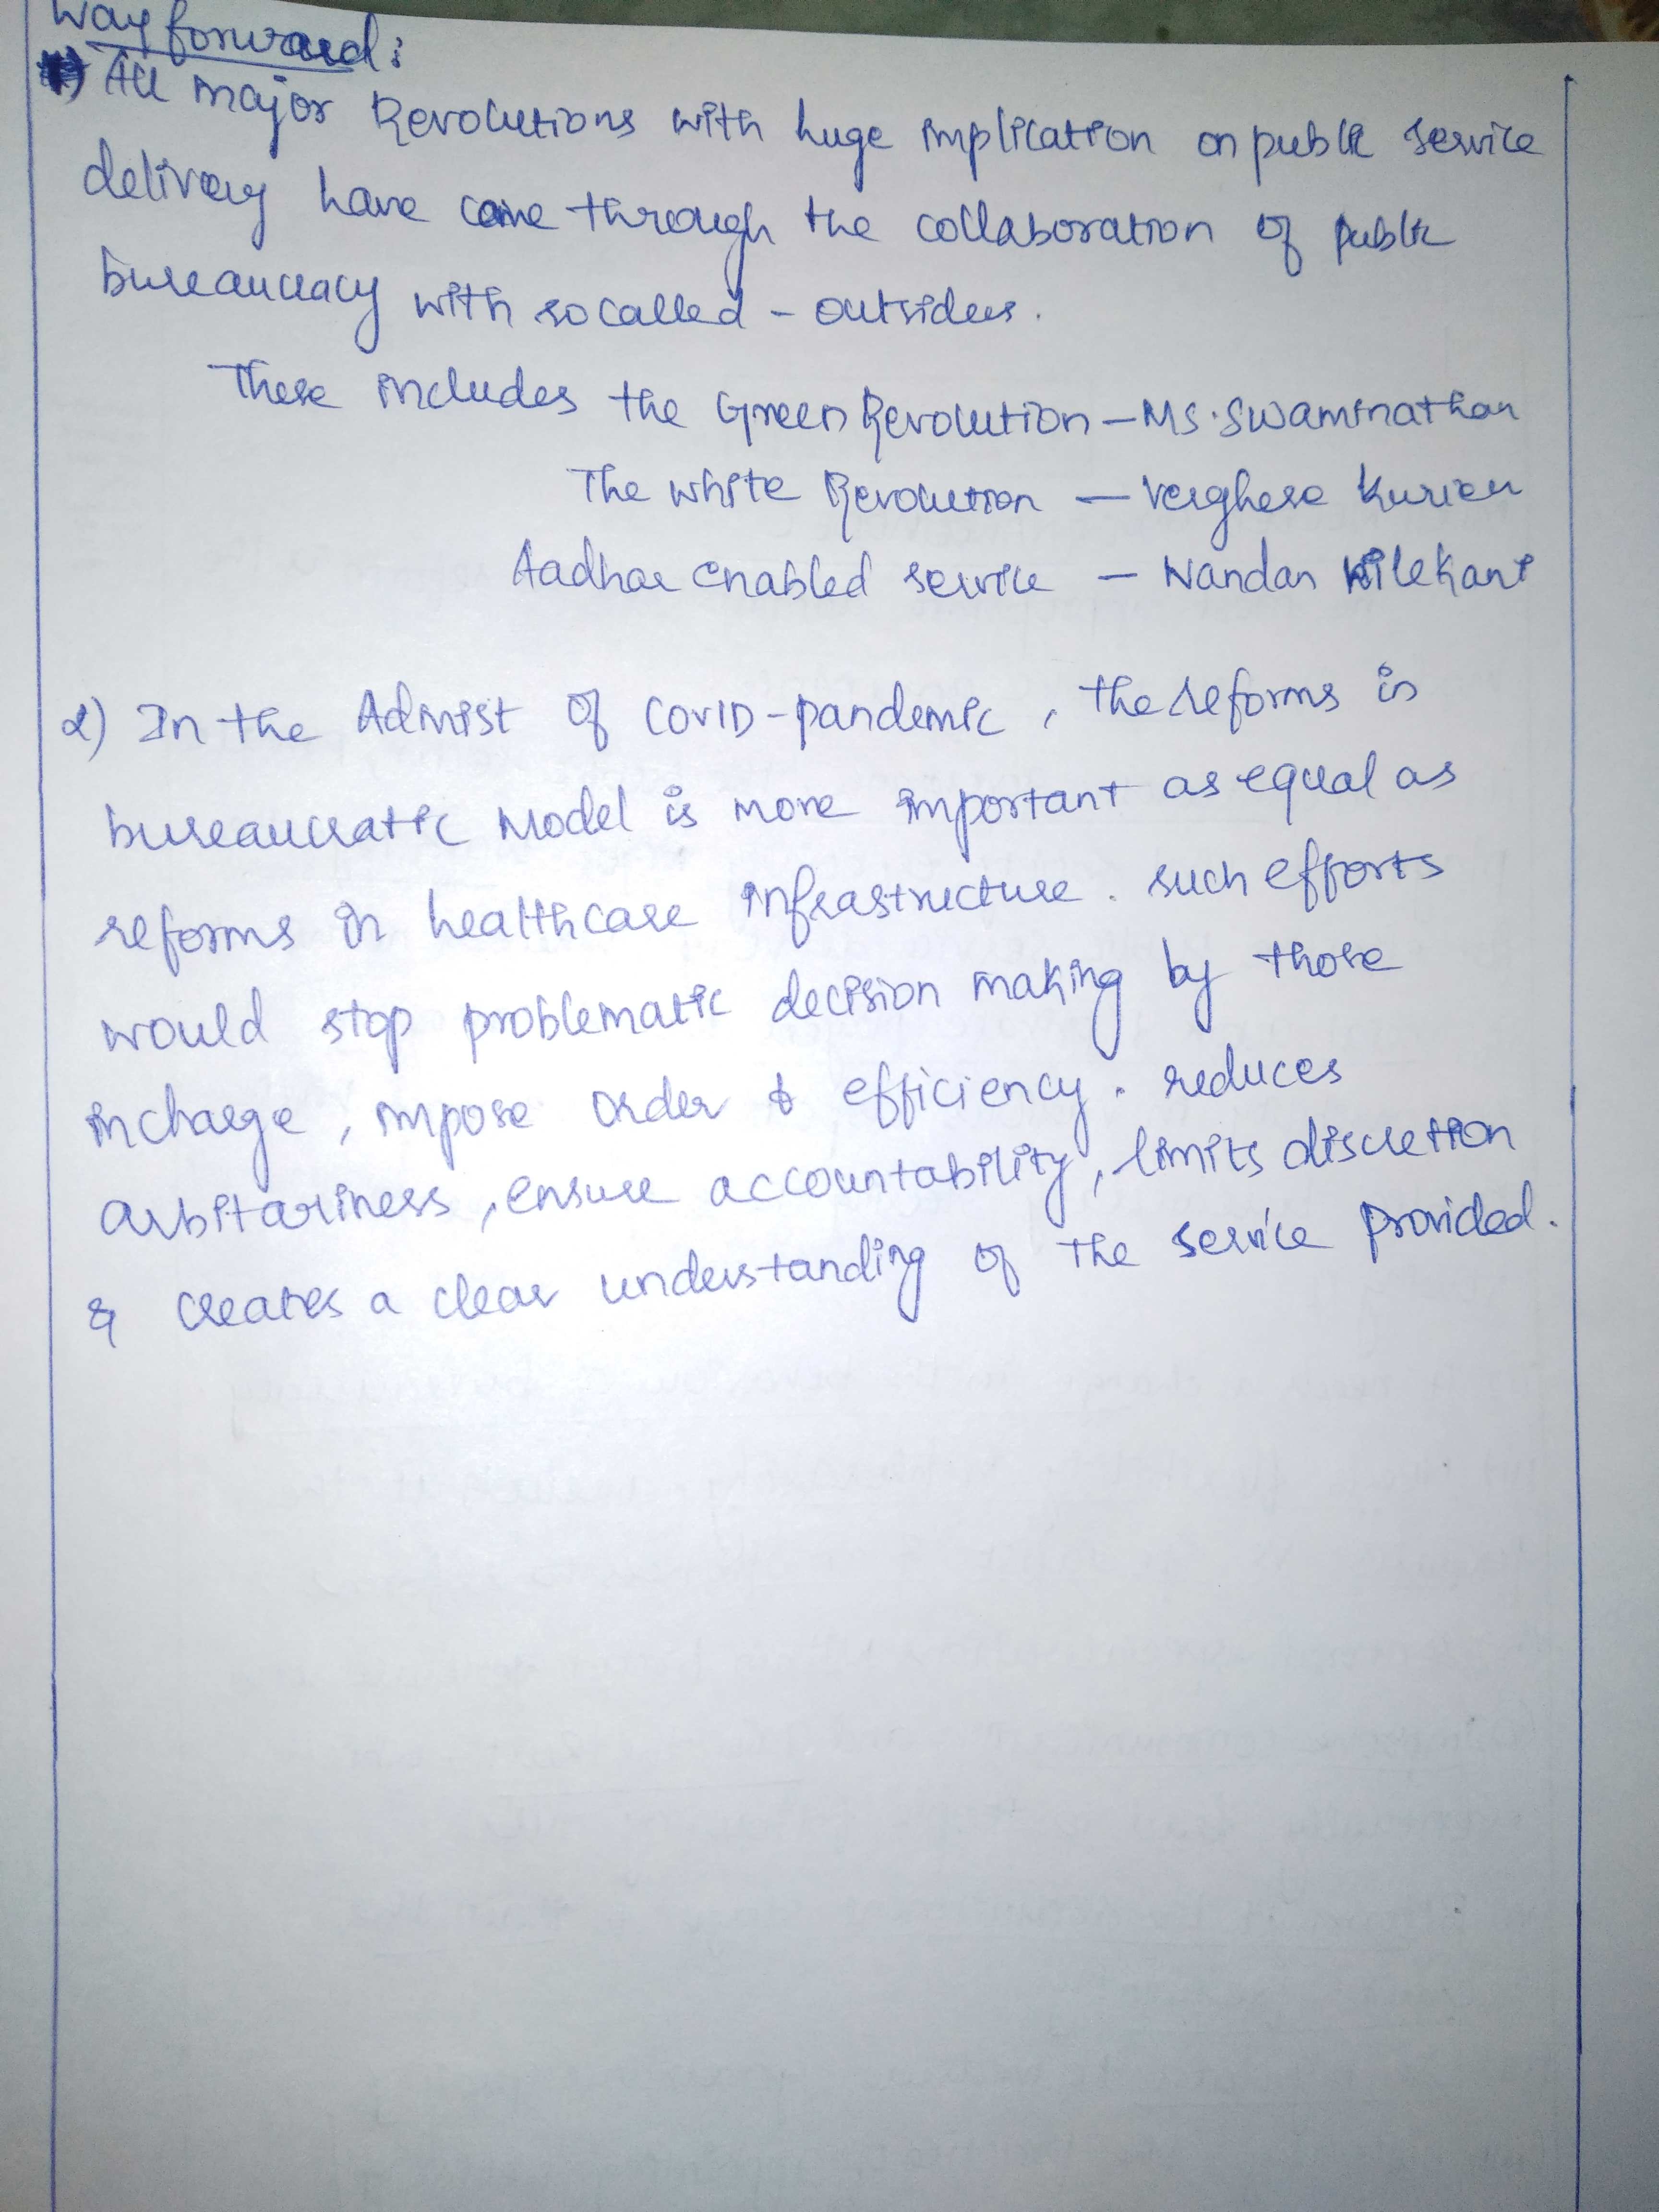 Way forward:
1) All major Revolutions with huge implication on public service
delivery have came through the collaboration of public
bureaucracy with so called - outsiders.
These includes the Green Revolution - MS. Swaminathan
The white Revolution - Verghese Kurien
Aadhar enabled service - Nandan Nilekani
2) In the Admist of COVID-pandemic, the reforms is
bureaucratic Model is more important as equal as
reforms in healthcare infrastructure. such efforts
would stop problematic decision making by those
incharge, impose order & efficiency. reduces
arbitariness, ensure accountability, limits discretion
& creates a clear understanding of the service provided.